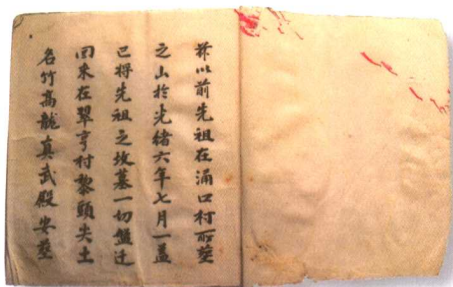 葬以前先祖在涌口村所塟
之山於光緒六年七月一盖
已將先祖之坟墓一切盤迁
回来在翠亨村黎頭尖土
名竹高龍真武殿安塟